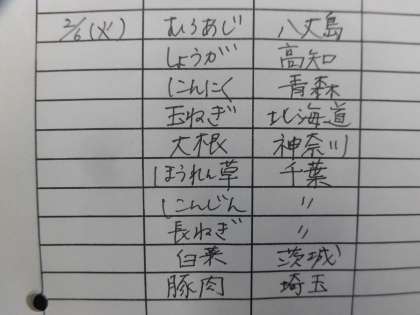 2/6(火) むろあじ 八丈島
しょうが 高知
にんにく 青森
玉ねぎ 北海道
大根 神奈川
ほうれん草 千葉
にんじん 〃
長ねぎ 〃
白菜 茨城
豚肉 埼玉